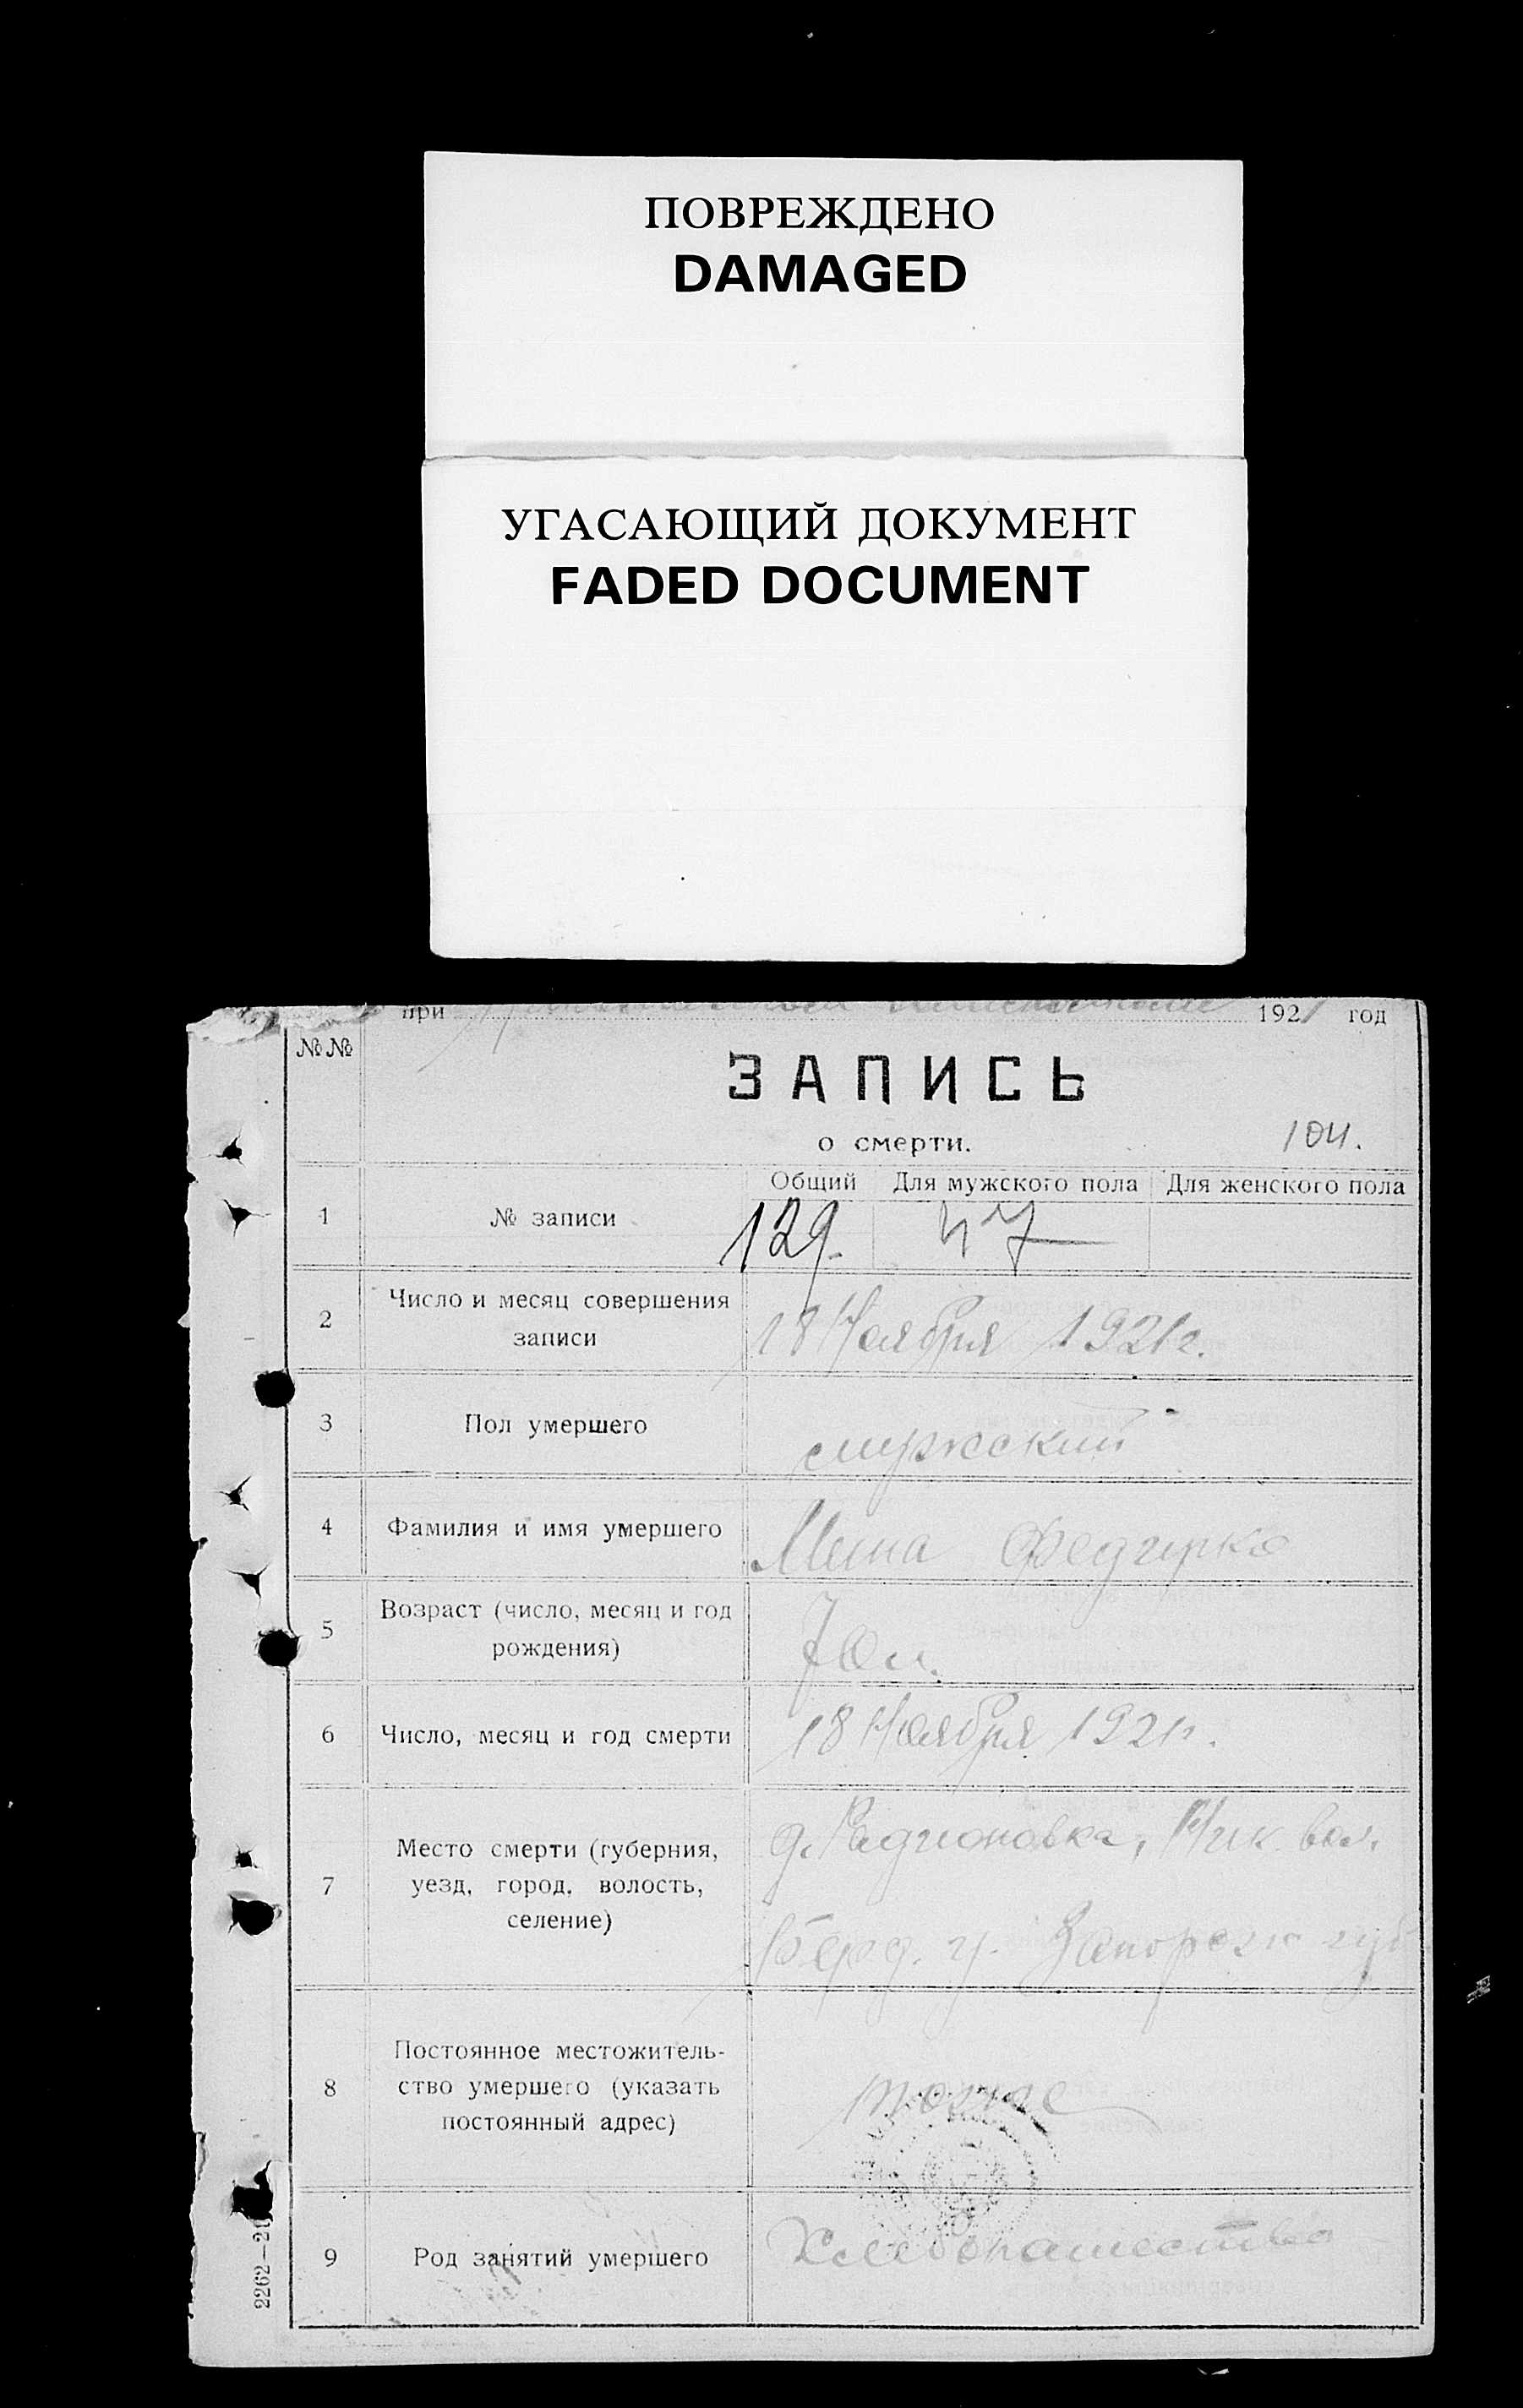 ПОВРЕЖДЕНО
DAMAGED
УГАСАЮЩИЙ ДОКУМЕНТ
FADED DOCUMENT
при 1921 год
№№
ЗАПИСЬ
о смерти.
104.
Общий Для мужского пола Для женского пола
1 № записи 129. 47
2 Число и месяц совершения
записи
18 Ноября 1921г.
3 Пол умершего мужский
4 Фамилия и имя умершего
5 Возраст (число, месяц и год
рождения)
6 Число, месяц и год смерти 18 Ноября 1921г.
7 Место смерти (губерния,
уезд, город, волость,
селение)
д. Радионовка, Ник. вол.
Берд. у. Запорож губ
8 Постоянное местожитель-
ство умершего (указать
постоянный адрес)
тоже
9 Род занятий умершего Хлебопашество
2262—21